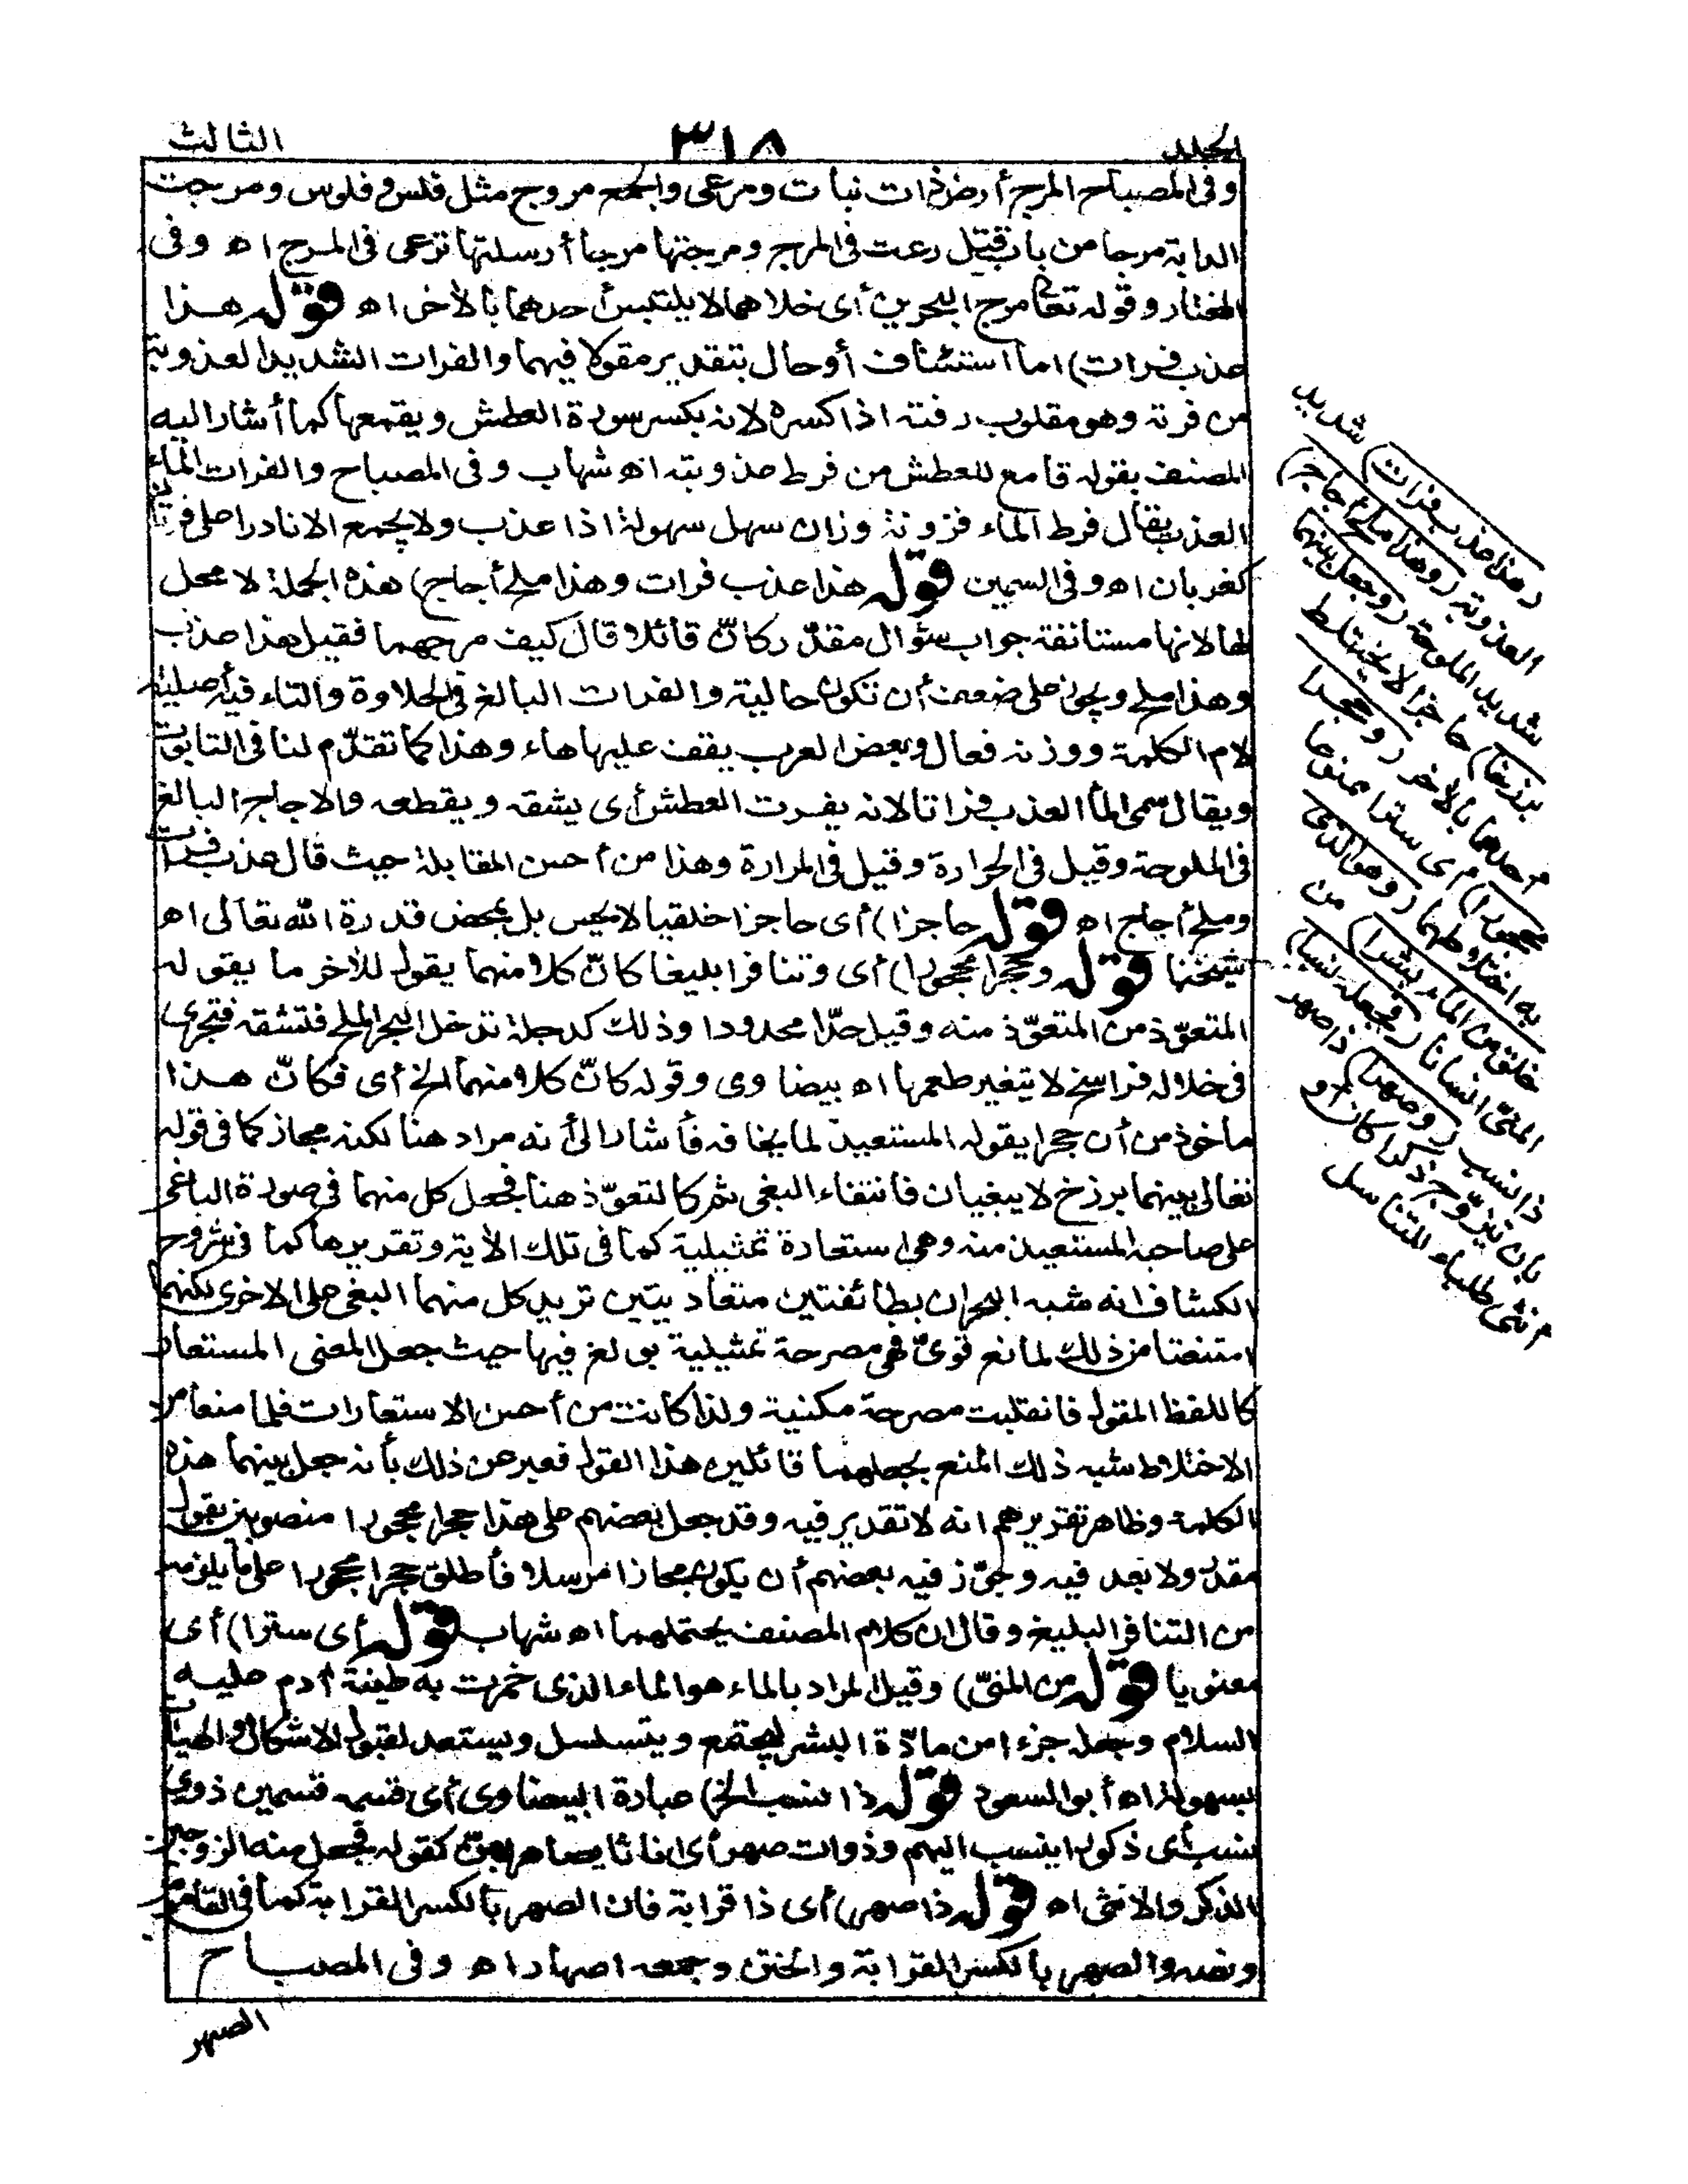 المجلد
٣١٨
الثالث
وفى المصباح المرج أرض ذات نبات ومرعى والجمع مروج مثل فلس وفلوس ومرجت
الدابة مرجا من باب قتل رعت فى المرج ومرجتها مرجا أرسلتها ترعى فى المرج اه وفى
المختار وقوله تعالى مرج البحرين أى خلاهما لا يلتبس أحدهما بالأخر اه قوله هذا
عذب فرات) اما استئناف أو حال بتقدير مقولا فيهما والفرات الشديد العذوبة
من فرته وهو مقلوب رفته اذا كسره لانه يكسر سورة العطش ويقمعها كما أشار اليه
المصنف بقوله قامع للعطش من فرط عذوبته اه شهاب وفى المصباح والفرات الماء
العذب يقال فرط الماء فزونة وزان سهل سهولة اذا عذب ولا يجمع الا نادرا على فرتان
كغربان اه وفى السمين قوله هذا عذب فرات وهذا ملح أجاج) هذه الجملة لا محل
لها لانها مستأنفة جواب سؤال مقدر كانّ قائلا قال كيف مرجهما فقيل هذا عذب
وهذا ملح ويجوز على ضعف أن تكون حالية والفرات البالغ فى الحلاوة والتاء فيه أصلية
لام الكلمة ووزنه فعال وبعض العرب يقف عليها هاء وهذا كما تقدّم لنا فى التابوت
ويقال سمى الماء العذب فراتا لانه يفرت العطش أى يشقه ويقطعه والاجاج البالغ
فى الملوحة وقيل فى الحرارة وقيل فى المرارة وهذا من أحسن المقابلة حيث قال عذب فرات
وملح أجاج اه قوله حاجزا) أى حاجزا خلقيا لا يحس بل بمحض قدرة الله تعالى اه
شيخنا قوله وحجرا محجورا) أى وتنافرا بليغا كانّ كلا منهما يقول للأخر ما يقوله
المتعوّذ من المتعوّذ منه وقيل حدّا محدودا وذلك كدجلة تدخل البحر الملح فتشقه فتجرى
فى خلاله فراسخ لا يتغير طعمها اه بيضاوى وقوله كانّ كلا منهما الخ أى فكانّ هذا
مأخوذ من أن حجرا يقوله المستعيذ لما يخافه فأشار الى أنه مراد هنا لكنه مجاز كما فى قوله
تعالى بينهما برزخ لا يبغيان فانتفاء البغى ثم كالتعوّذ هنا فجعل كل منهما فى صورة الباغى
على صاحبه المستعيذ منه وهى استعارة تمثيلية كما فى تلك الأية وتقريرها كما فى شروح
الكشاف انه شبه البحران بطائفتين متعاديتين تريد كل منهما البغى على الاخرى لكنهما
امتنعتا من ذلك لمانع قوى فهى مصرحة تمثيلية بولغ فيها حيث جعل المعنى المستعار
كاللفظ المقول فانقلبت مصرحة مكنية ولذا كانت من أحسن الاستعارات فلما منعا من
الاختلاط شبه ذلك المنع بجعلهما قائلين هذا القول فعبر عن ذلك بأنه جعل بينهما هذه
الكلمة وظاهر تقريرهم انه لا تقدير فيه وقد جعل بعضهم على هذا حجرا محجورا منصوبين بقول
مقدر ولا بعد فيه وجوّز فيه بعضهم أن يكون مجازا مرسلا فأطلق حجرا محجورا على ما يلزمه
من التنافر البليغ وقال ان كلام المصنف يحتملهما اه شهاب قوله أى سترا) أى
معنويا قوله من المنىّ) وقيل المراد بالماء هو الماء الذى خمرت به طينة أدم عليه
السلام وجعل جزءا من مادّة البشر ليجتمع ويتسلسل ويستعد لقبول الاشكال والهيأت
بسهولة اه أبو السعود قوله ذا نسب الخ) عبارة البيضاوى أى قسمه قسمين ذوى
نسب أى ذكورا ينسب اليهم وذوات صهر أى اناثا يصاهر بهنّ كقوله فجعل منه الزوجين
الذكر والانثى اه قوله ذا صهر) أى ذا قرابة فان الصهر بالكسر القرابة كما فى القاموس
ونصه والصهر بالكسر القرابة والختن وجمعه اصهار اه وفى المصباح
الصهر
(هذا عذب فرات) شديد
العذوبة (وهذا ملح أجاج)
شديد الملوحة (وجعل بينهما
برزخا) حاجزا لا يختلط
أحدهما بالأخر (وحجرا
محجورا) أى سترا ممنوعا
به اختلاطهما (وهو الذى
خلق من الماء بشرا) من
المنىّ انسانا (فجعله نسبا)
ذا نسب (وصهرا) ذا صهر
بان يتزوّج ذكرا كان أو
أنثى طلبا للتناسل